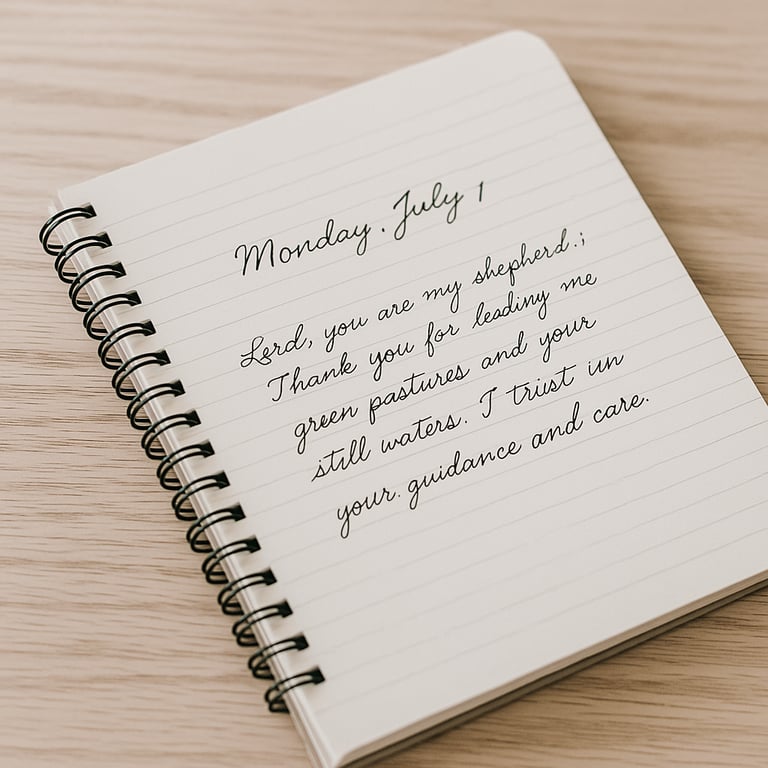 Monday. July 1
Lord, you are my shepherd.;
Thank you for leading me
green pastures and your
still waters. I trust un
your. guidance and care.